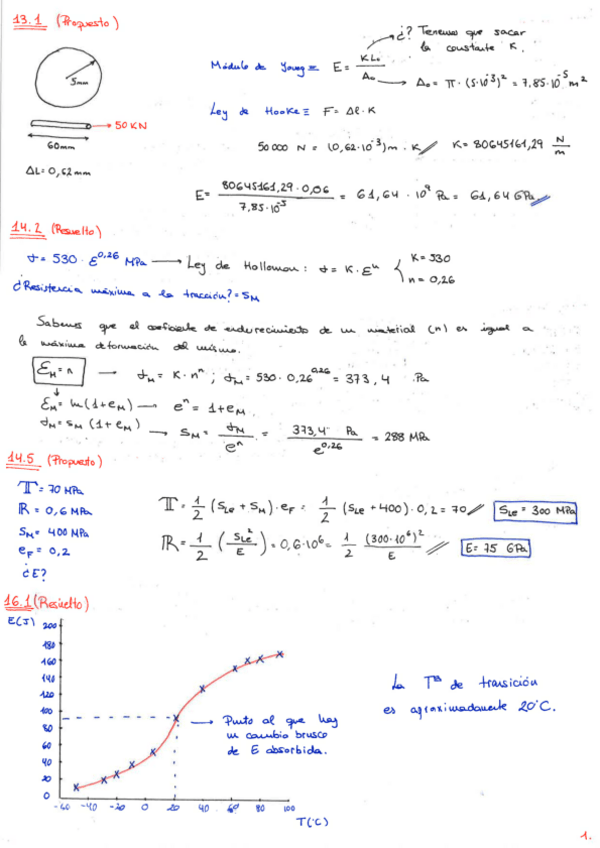 13.1 (Propuesto)
5mm
50 KN
60mm
ΔL = 0,62mm
¿? Tenemos que sacar
la constante K.
Módulo de Young ≡ E = KL₀ / A₀
A₀ = π · (5·10⁻³)² = 7,85·10⁻⁵ m²
Ley de Hooke ≡ F = Δl · K
50000 N = (0,62·10⁻³)m · K // K = 80645161,29 N/m
E = 80645161,29 · 0,06 / 7,85·10⁻⁵ = 61,64 · 10⁹ Pa = 61,64 GPa //
14.2 (Resuelto)
σ = 530 · ε^0,26 MPa → Ley de Hollomon: σ = K · εⁿ { K = 530
n = 0,26
¿Resistencia máxima a la tracción? = S_M
Sabemos que el coeficiente de endurecimiento de un material (n) es igual a
la máxima deformación del mismo.
ε_M = n → σ_M = K · nⁿ ; σ_M = 530 · 0,26^0,26 = 373,4 Pa
ε_M = ln(1+e_M) → eⁿ = 1+e_M
σ_M = S_M (1+e_M) → S_M = σ_M / eⁿ = 373,4 Pa / e^0,26 = 288 MPa
14.5 (Propuesto)
T = 70 MPa
R = 0,6 MPa
S_M = 400 MPa
e_F = 0,2
¿E?
T = 1/2 (S_Le + S_M) · e_F = 1/2 (S_Le + 400) · 0,2 = 70 // S_Le = 300 MPa
R = 1/2 (S_Le² / E) = 0,6·10⁶ = 1/2 (300·10⁶)² / E // E = 75 GPa
16.1 (Resuelto)
E(J)
200
180
160
140
120
100
80
60
40
20
0
-60 -40 -20 0 20 40 60 80 100
T(ºC)
Punto al que hay
un cambio brusco
de E absorbida.
La Tª de transición
es aproximadamente 20ºC.
1.